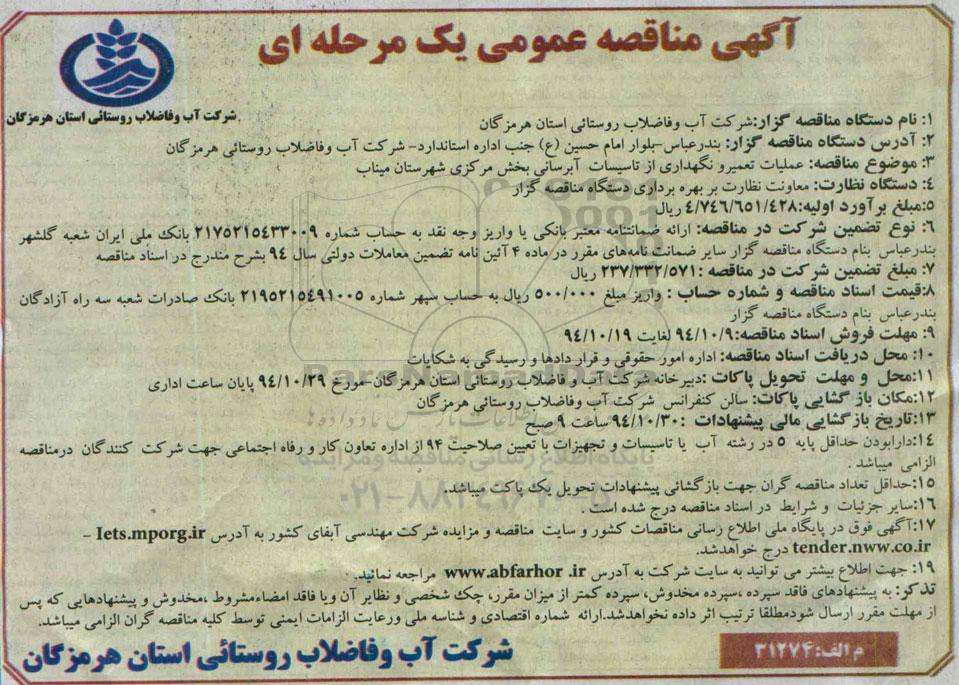 آگهی مناقصه عمومی یک مرحله ای
شرکت آب وفاضلاب روستائی استان هرمزگان
۱: نام دستگاه مناقصه گزار:شرکت آب وفاضلاب روستائی استان هرمزگان
۲: آدرس دستگاه مناقصه گزار: بندرعباس-بلوار امام حسین (ع) جنب اداره استاندارد- شرکت آب وفاضلاب روستائی هرمزگان
۳: موضوع مناقصه: عملیات تعمیرو نگهداری از تاسیسات آبرسانی بخش مرکزی شهرستان میناب
۴: دستگاه نظارت: معاونت نظارت بر بهره برداری دستگاه مناقصه گزار
۵:مبلغ برآورد اولیه:۴/۷۴۶/۶۵۱/۴۲۸ ریال
۶: نوع تضمین شرکت در مناقصه: ارائه ضمانتنامه معتبر بانکی یا واریز وجه نقد به حساب شماره ۲۱۷۵۲۱۵۴۳۳۰۰۹ بانک ملی ایران شعبه گلشهر
بندرعباس بنام دستگاه مناقصه گزار سایر ضمانت نامه‌های مقرر در ماده ۴ آئین نامه تضمین معاملات دولتی سال ۹۴ بشرح مندرج در اسناد مناقصه
۷: مبلغ تضمین شرکت در مناقصه :۲۳۷/۳۳۲/۵۷۱ ریال
۸:قیمت اسناد مناقصه و شماره حساب : واریز مبلغ ۵۰۰/۰۰۰ ریال به حساب سپهر شماره ۲۱۹۵۲۱۵۴۹۱۰۰۵ بانک صادرات شعبه سه راه آزادگان
بندرعباس بنام دستگاه مناقصه گزار
۹: مهلت فروش اسناد مناقصه:۹۴/۱۰/۹ لغایت ۹۴/۱۰/۱۹
۱۰: محل دریافت اسناد مناقصه: اداره امور حقوقی و قرار دادها و رسیدگی به شکایات
۱۱:محل و مهلت تحویل پاکات :دبیرخانه شرکت آب و فاضلاب روستائی استان هرمزگان-مورخ ۹۴/۱۰/۲۹ پایان ساعت اداری
۱۲:مکان باز گشایی پاکات: سالن کنفرانس شرکت آب وفاضلاب روستائی هرمزگان
۱۳:تاریخ بازگشایی مالی پیشنهادات :۹۴/۱۰/۳۰ ساعت ۹ صبح
۱۴:دارابودن حداقل پایه ۵ در رشته آب یا تاسیسات و تجهیزات با تعیین صلاحیت ۹۴ از اداره تعاون کار و رفاه اجتماعی جهت شرکت کنندگان درمناقصه
الزامی میباشد .
۱۵:حداقل تعداد مناقصه گران جهت بازگشائی پیشنهادات تحویل یک پاکت میباشد.
۱۶:سایر جزئیات و شرایط در اسناد مناقصه درج شده است .
۱۷:آگهی فوق در پایگاه ملی اطلاع رسانی مناقصات کشور و سایت مناقصه و مزایده شرکت مهندسی آبفای کشور به آدرس Iets.mporg.ir -
tender.nww.co.ir درج خواهدشد.
۱۹: جهت اطلاع بیشتر می توانید به سایت شرکت به آدرس www.abfarhor .ir مراجعه نمائید.
تذکر: به پیشنهادهای فاقد سپرده ،سپرده مخدوش، سپرده کمتر از میزان مقرر، چک شخصی و نظایر آن ویا فاقد امضاءمشروط ،مخدوش و پیشنهادهایی که پس
از مهلت مقرر ارسال شودمطلقا ترتیب اثر داده نخواهدشد.ارائه شماره اقتصادی و شناسه ملی ورعایت الزامات ایمنی توسط کلیه مناقصه گران الزامی میباشد.
م الف:۳۱۲۷۴
شرکت آب وفاضلاب روستائی استان هرمزگان